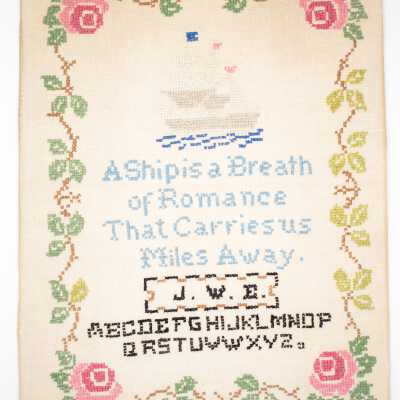 A Ship is a Breath
of Romance
That Carries us
Miles Away.
J. W. E.
ABCDEFGHIJKLMNOP
QRSTUVWXYZ.